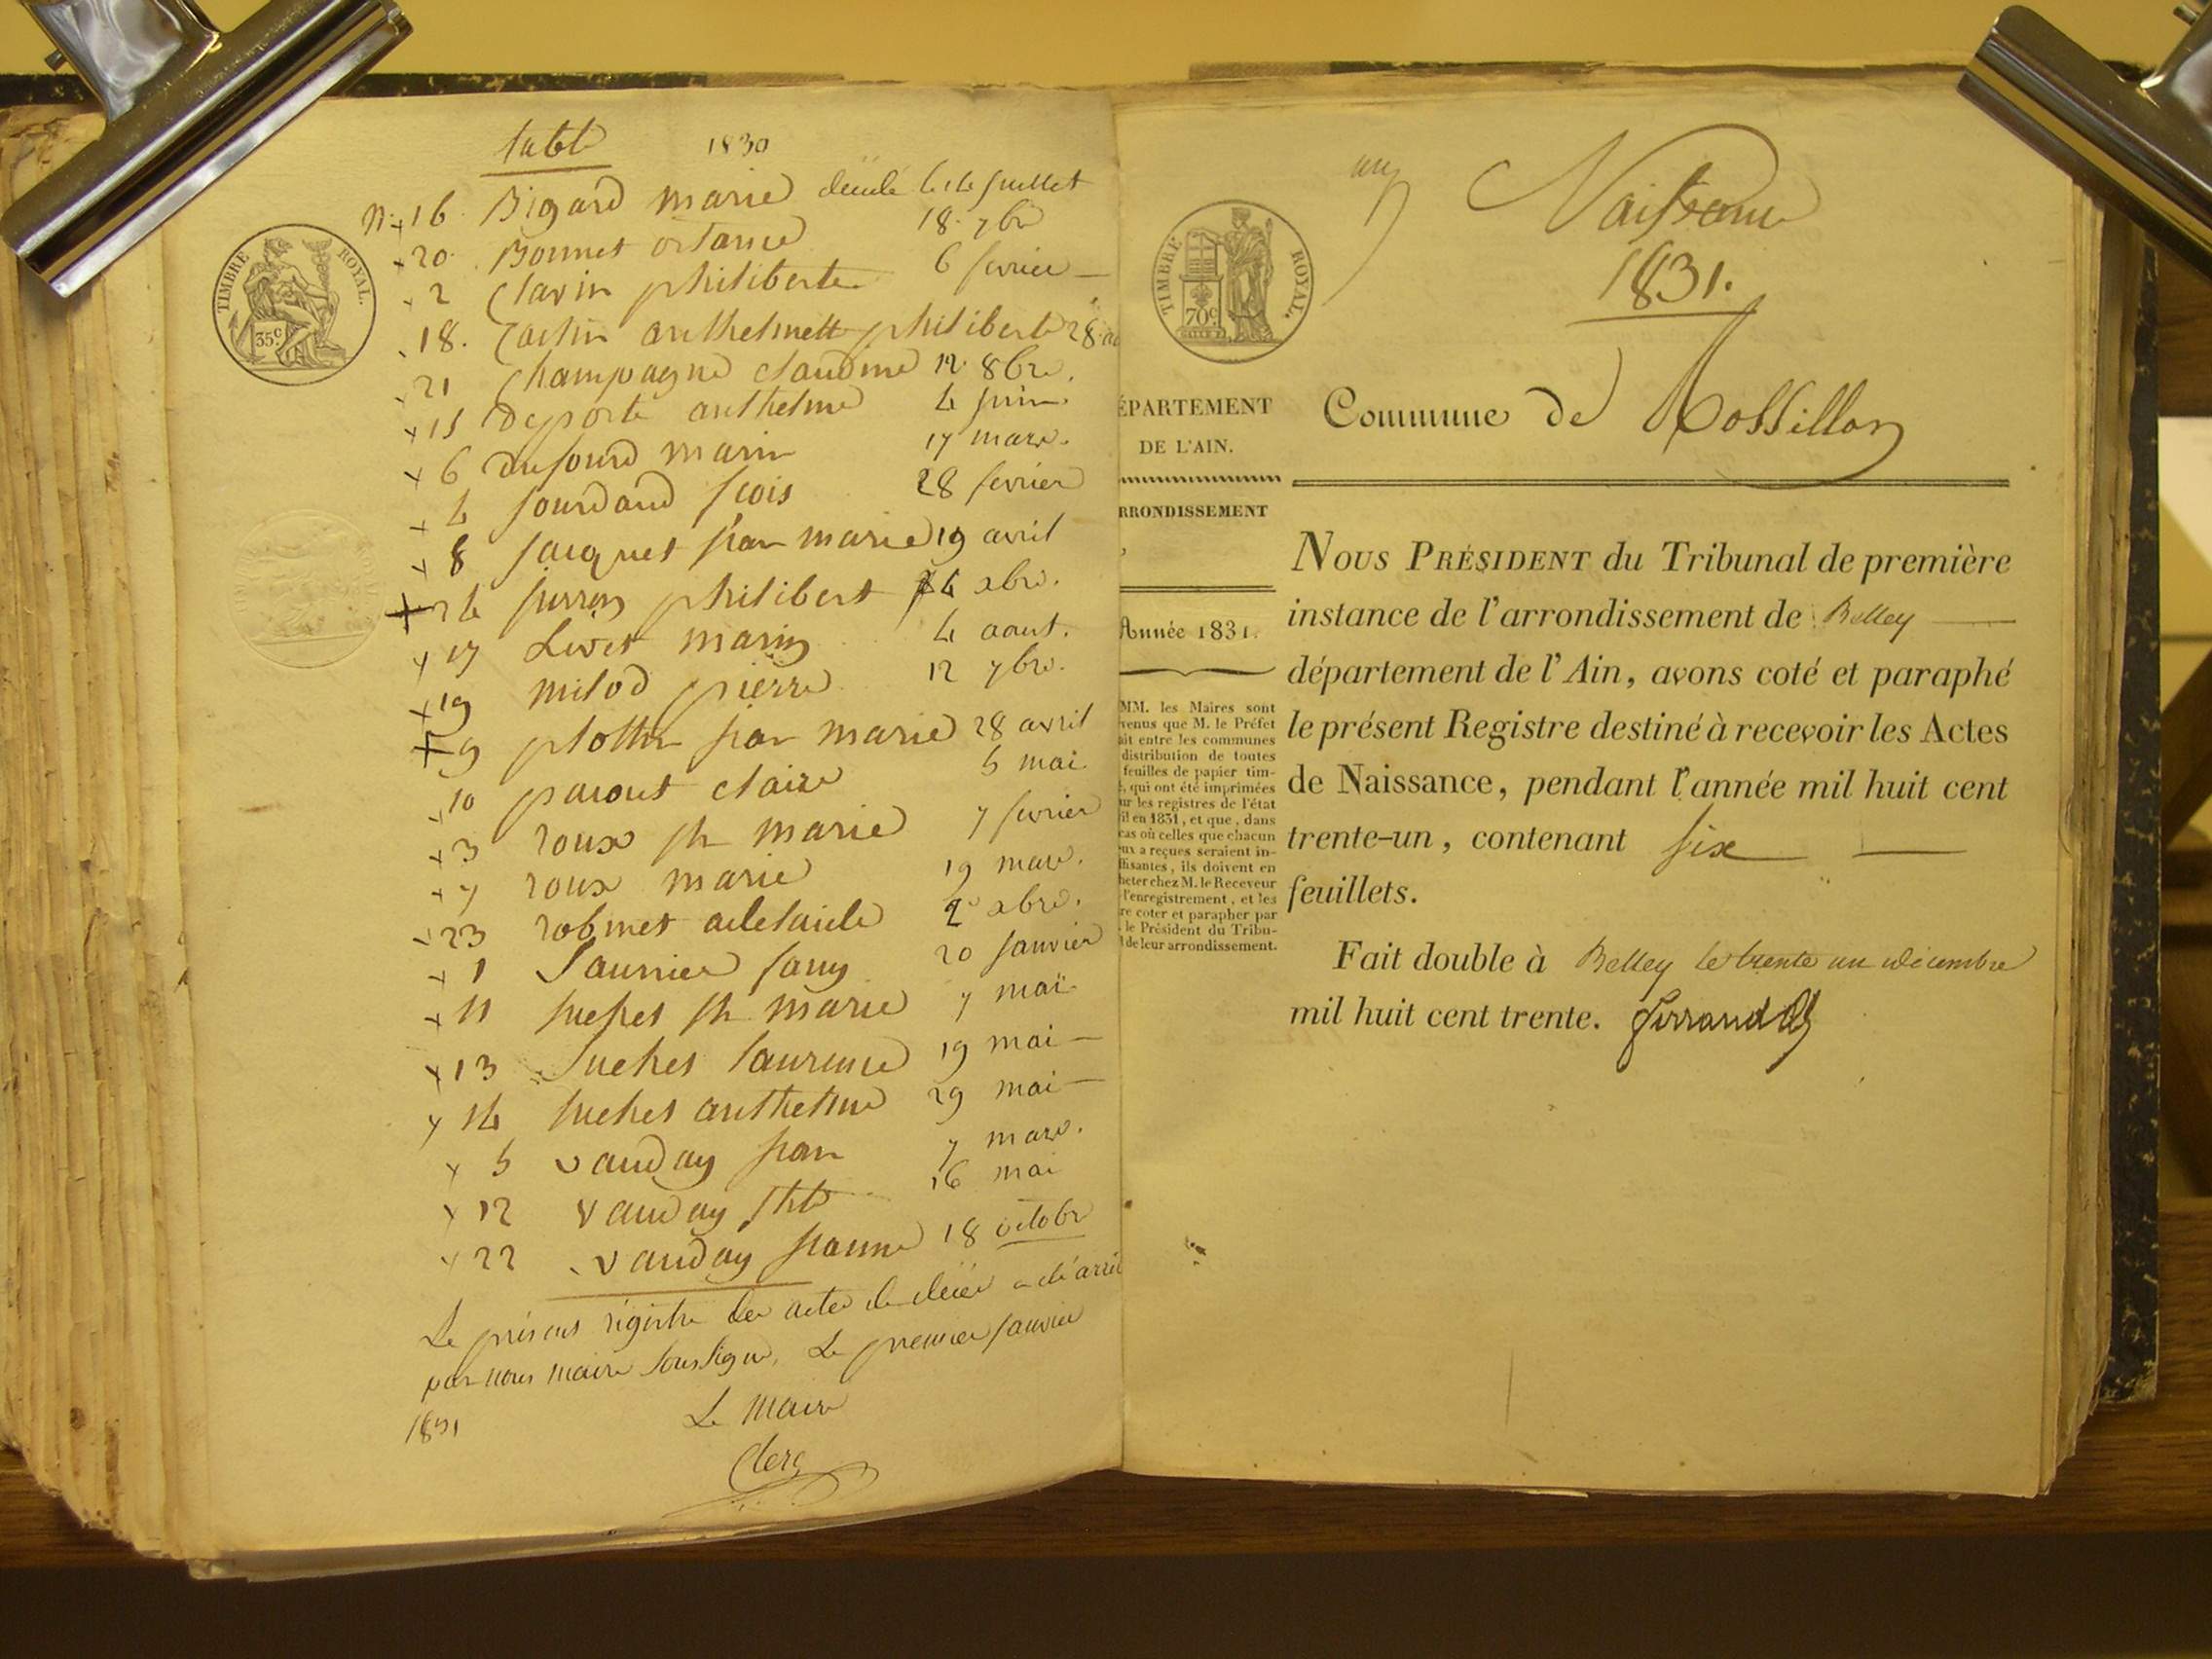 table 1830
TIMBRE ROYAL.
35c
N. 16 Bigard marie décédé le 14 juillet
20 Bonnet ortance 18 7bre
2 Clavin philiberte 6 fevrier
18. anthelmette philiberte 28
21 Champagne claudine 12 8bre.
15 Deporte anthelme 4 juin.
6 Dufourd marin 17 mars.
4 Jourdand fcois 28 fevrier
8 Jacquet jean marie 19 avril
24 philibert 4 xbre.
17 Livet marin 4 aout.
19 milod pierre 12 7bre.
9 plottin jean marie 28 avril
10 parout claire 5 mai
3 roux jh marie 7 fevrier
7 roux marie 19 mars.
23 robinet adelaide 2 xbre.
1 Saunier fany 20 janvier
11 Suchet jh marie 7 mai
13 Suchet laurence 19 mai
14 Suchet anthelme 29 mai
5 vauday jean 7 mars.
12 vauday 16 mai
22 vauday jeanne 18 octobre
Le présent régistre des actes de décés a été arrêté
par nous maire soussigné, Le premier janvier
1831
Le Maire
Clerc
Naissance
1831.
TIMBRE ROYAL.
70c
Commune de Rossillon
ÉPARTEMENT
DE L'AIN.
RRONDISSEMENT
Année 1831.
MM. les Maires sont
venus que M. le Préfet
ait entre les communes
distribution de toutes
feuilles de papier tim-
, qui ont été imprimées
ur les registres de l'état
il en 1831, et que, dans
cas où celles que chacun
ux a reçues seraient in-
ffisantes, ils doivent en
heter chez M. le Receveur
l'enregistrement, et les
re coter et parapher par
le Président du Tribu-
l de leur arrondissement.
NOUS PRÉSIDENT du Tribunal de première
instance de l'arrondissement de Belley
département de l'Ain, avons coté et paraphé
le présent Registre destiné à recevoir les Actes
de Naissance, pendant l'année mil huit cent
trente-un, contenant six
feuillets.
Fait double à Belley le trente un décembre
mil huit cent trente.